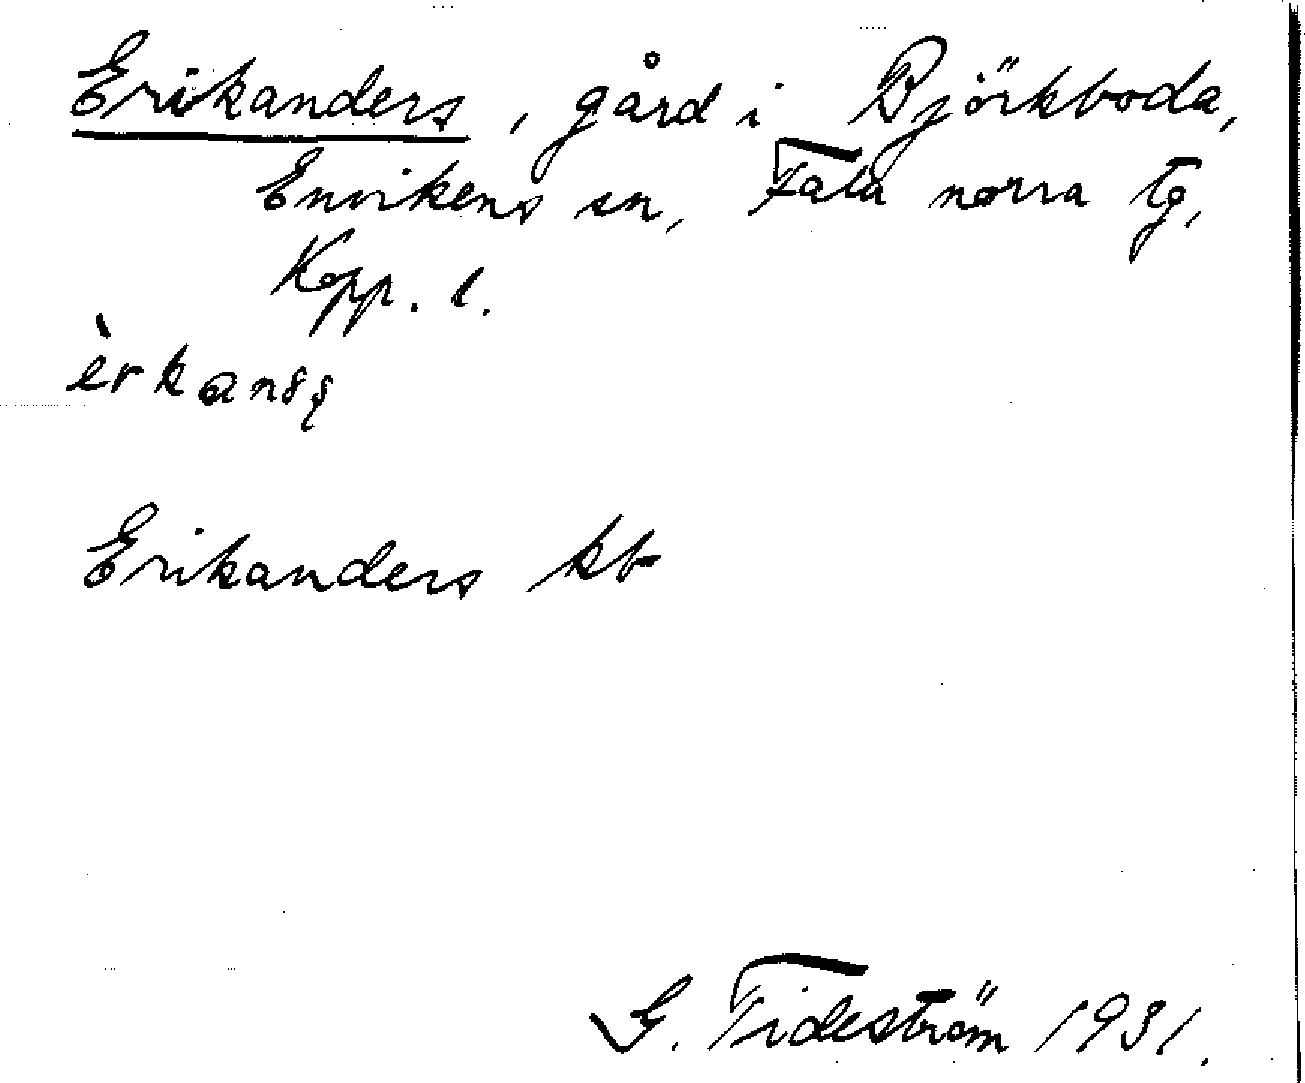 Erikanders, gård i Björkboda,
Envikens sn, Falu norra tg,
Kopp. l.
Erikanders kb
G. Tideström 1931.